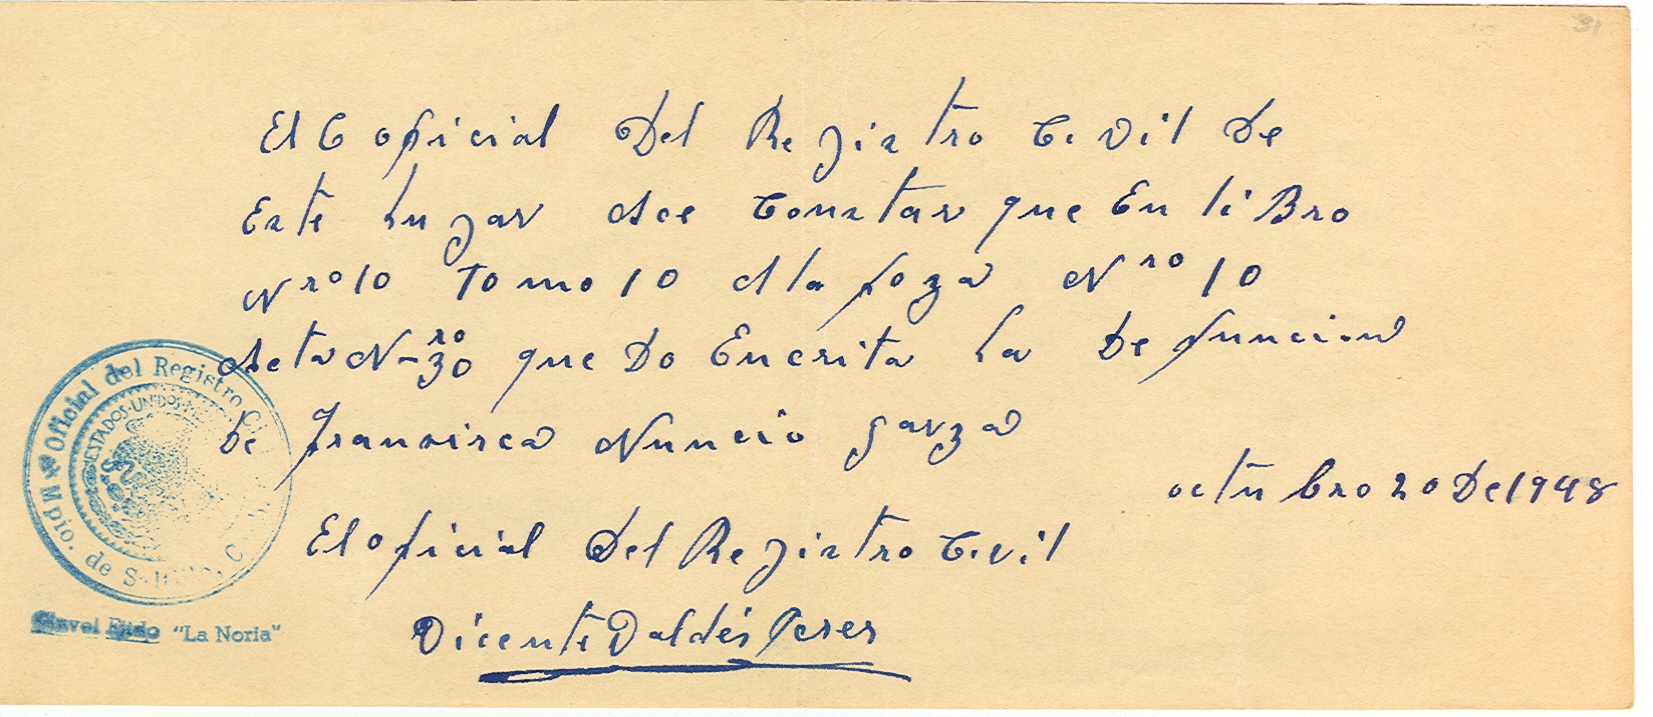 El C oficial Del Registro Civil De
Este Lugar Ase Constar que En liBro
Nro 10 Tomo 10 A la foza Nro 10
Acta Nro 30 que Do Encrita La Defuncion
De Francisca Nuncio Garza
octubro 20 De 1948
El oficial Del Registro Civil
Vicente Valdés Peres
Oficial del Registro Ci
ESTADOS UNIDOS ME
Mpio. de Saltillo, C
"La Noria"
31